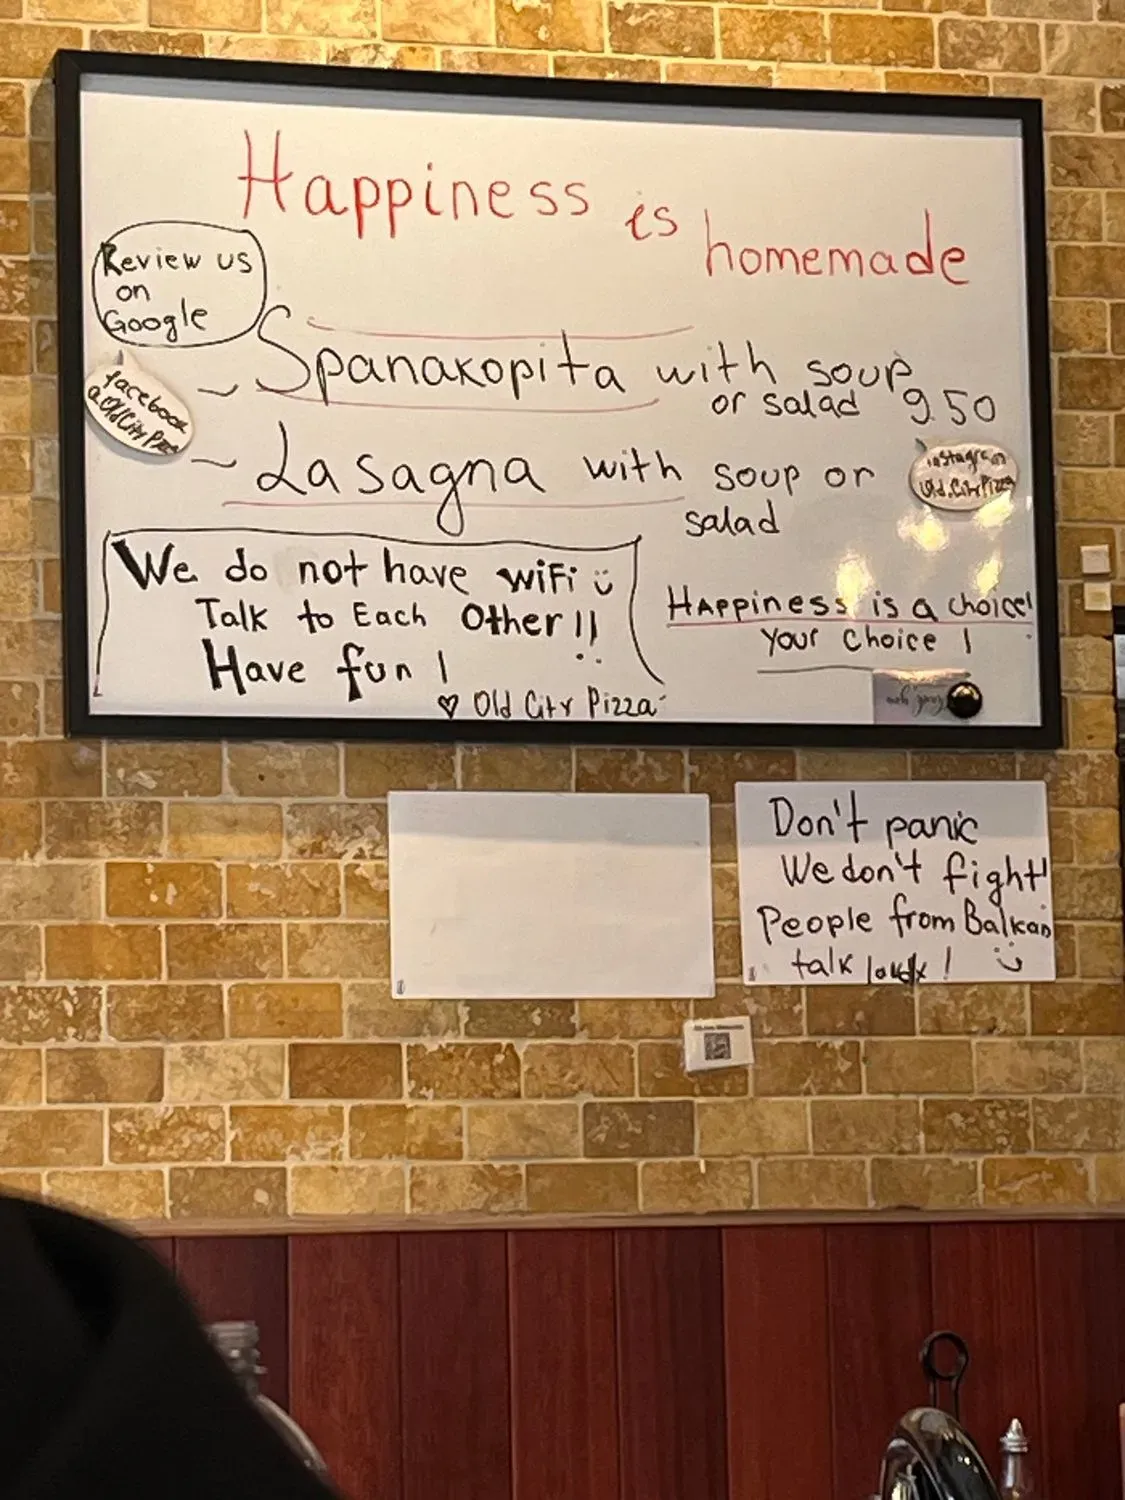 Happiness is homemade
Review us
on
Google
Spanakopita with soup
or salad 9.50
facebook
@OldCityPizza
Lasagna with soup or
salad
instagram
Old.CityPizza
We do not have wiFi
Talk to Each Other!!
Have fun!
♡ Old City Pizza
Happiness is a choice!
Your Choice!
Don't panic
We don't fight!
People from Balkan
talk loud!